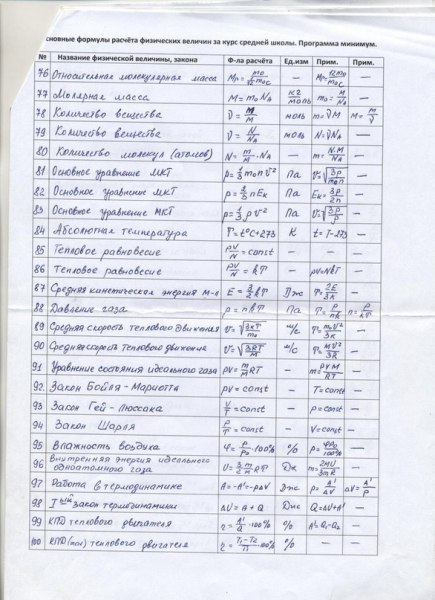 сновные формулы расчёта физических величин за курс средней школы. Программа минимум.
№ Название физической величины, закона Ф-ла расчёта Ед.изм Прим. Прим.
76 Относительная молекулярная масса —
77 Молярная масса M = m₀ N_A кг/моль m₀ = M/N_A —
78 Количество вещества ν = m/M моль m = νM M = m/ν
79 Количество вещества ν = N/N_A моль N = νN_A —
80 Количество молекул (атомов) N = m/M · N_A — m = N·M/N_A —
81 Основное уравнение МКТ p = 1/3 m₀ n v² Па v = √3p/m₀n —
82 Основное уравнение МКТ p = 2/3 n Eк Па Eк = 3p/2n —
83 Основное уравнение МКТ p = 1/3 ρ v² Па v = √3p/ρ —
84 Абсолютная температура T = t°C + 273 K t = T - 273 —
85 Тепловое равновесие pV/N = const — — —
86 Тепловое равновесие pV/N = kT — pV = NkT —
87 Средняя кинетическая энергия м-л E = 3/2 kT Дж T = 2E/3k —
88 Давление газа p = nkT Па T = p/nk n = p/kT
89 Средняя скорость теплового движения v = √3kT/m₀ м/с T = m₀v²/3k —
90 Средняя скорость теплового движения v = √3RT/M м/с T = Mv²/3R —
91 Уравнение состояния идеального газа pV = m/M RT — m = pVM/RT —
92. Закон Бойля-Мариотта pV = const — T = const —
93 Закон Гей-Люссака V/T = const — p = const —
94 Закон Шарля p/T = const — V = const —
95 Влажность воздуха φ = p/p₀ · 100% % p = φp₀/100% —
96 Внутренняя энергия идеального
одноатомного газа U = 3/2 m/M RT Дж m = 2MU/3RT —
97 Работа в термодинамике A = -A' = -pΔV Дж p = A'/ΔV ΔV = A'/p
98 Iый закон термодинамики ΔU = A + Q Дж Q = ΔU + A' —
99 КПД теплового двигателя η = A'/Q₁ · 100% % A' = Q₁ - Q₂ —
100 КПД(max) теплового двигателя η = T₁-T₂/T₁ · 100% % — —